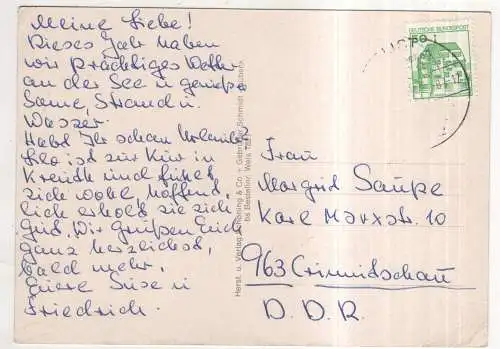 Meine Liebe!
Dieses Jahr haben
wir prächtiges Wetter
an der See u genießen
Sonne, Strand u.
Wasser.
Habt Ihr schon Urlaub?
ist zur Kur in
Kreuth und fühlt
sich wohl, hoffent,
lich erholt sie sich
gut. Wir grüßen Euch
ganz herzlichst,
bald mehr,
Eure Suse u
Friedrich.
Herst. u. Verlag Schöning & Co. + Gebrüder Schmidt, Lübeck
DEUTSCHE BUNDESPOST
50
Frau
Margrid Saupe
Karl Marxstr. 10
963 Crimmitschau
D. D. R.